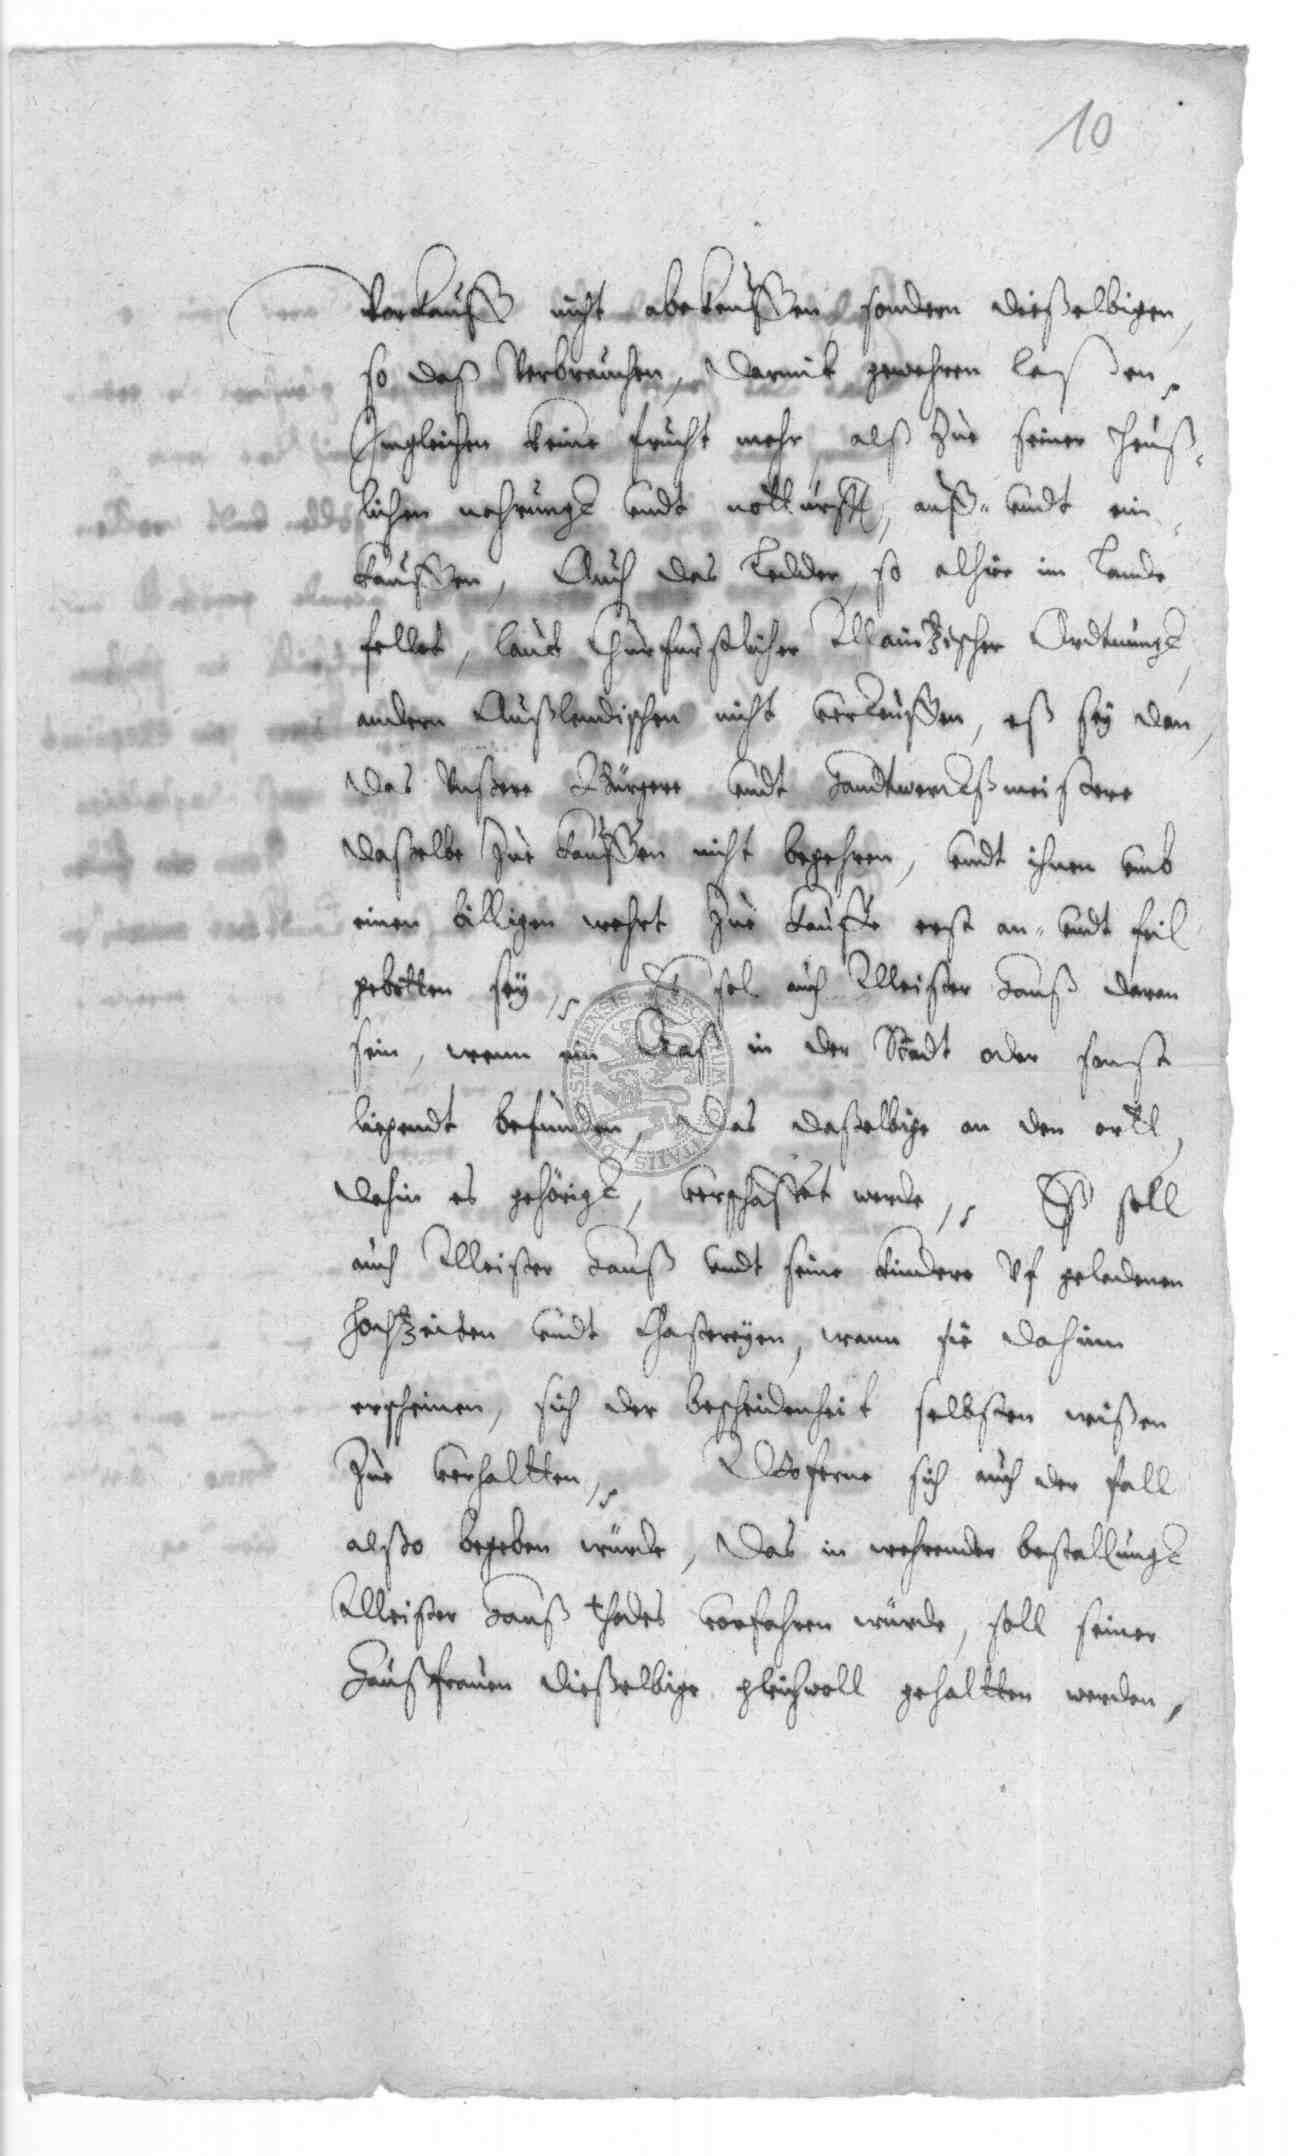 10
Vorkauff nicht abekeuffen, sondern dießelbigen,
so daß Verbrauchen, darmit gewehren laßen,
Imgleichen keine frucht mehr, alß zue seiner heuß-
lichen nehrungk undt nötturfft, auß- undt ein-
kauffen, Auch das Ledder, so alhier im Lande
fellet, laut Churfürstlicher Maintzischer Ordtnungk,
andern Außlendischen nicht verkeuffen, eß sey dan,
das Unßere Bürgere undt Handtwerckßmeistere
daßelbe zue kauffen nicht begehren, undt ihnen umb
einen billigen wehrt zue kauffe erst an- undt feil
gebotten sey, Es sol auch Meister Hanß daran
sein, wenn ein Aaß in der Stadt oder sonst
liegendt befunden, das daßelbige an den ortt,
dahin es gehörigk, verschaffet werde, Eß soll
auch Meister Hanß undt seine kindere Uf geladenen
Hochzeiten undt Gastereyen, wenn sie dahinn
erscheinen, sich der bescheidenheit selbsten wißen
zue verhaltten, Woferne sich auch der fall
alßo begeben würde, das in wehrender bestallungk
Meister Hanß thodes vorfahren würde, soll seiner
Haußfrauen dießelbige gleichwoll gehaltten werden,